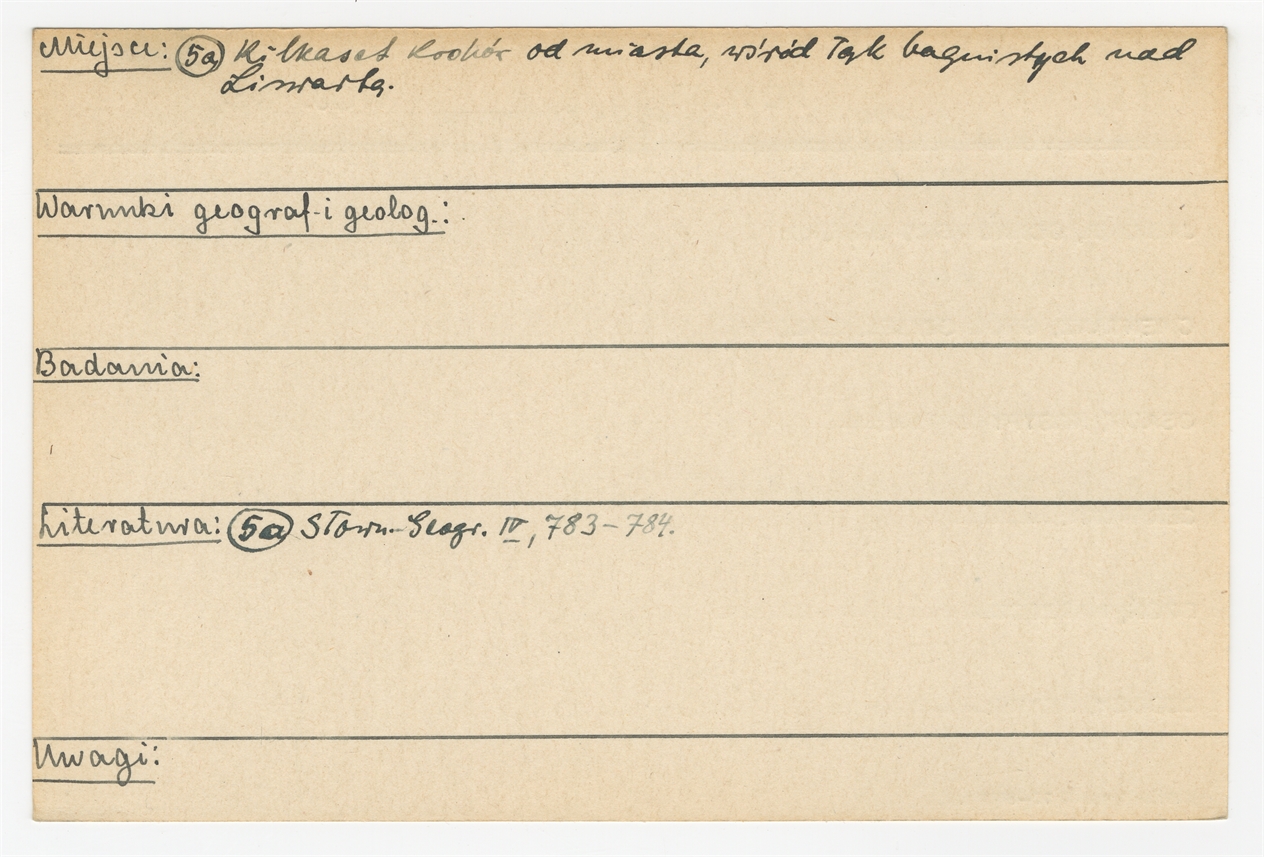 Miejsce: 5a Kilkaset kroków od miasta, wśród łąk bagnistych nad
Liswartą.
Warunki geograf-i geolog.:
Badania:
Literatura: 5a Słown. Geogr. IV, 783-784.
Uwagi: